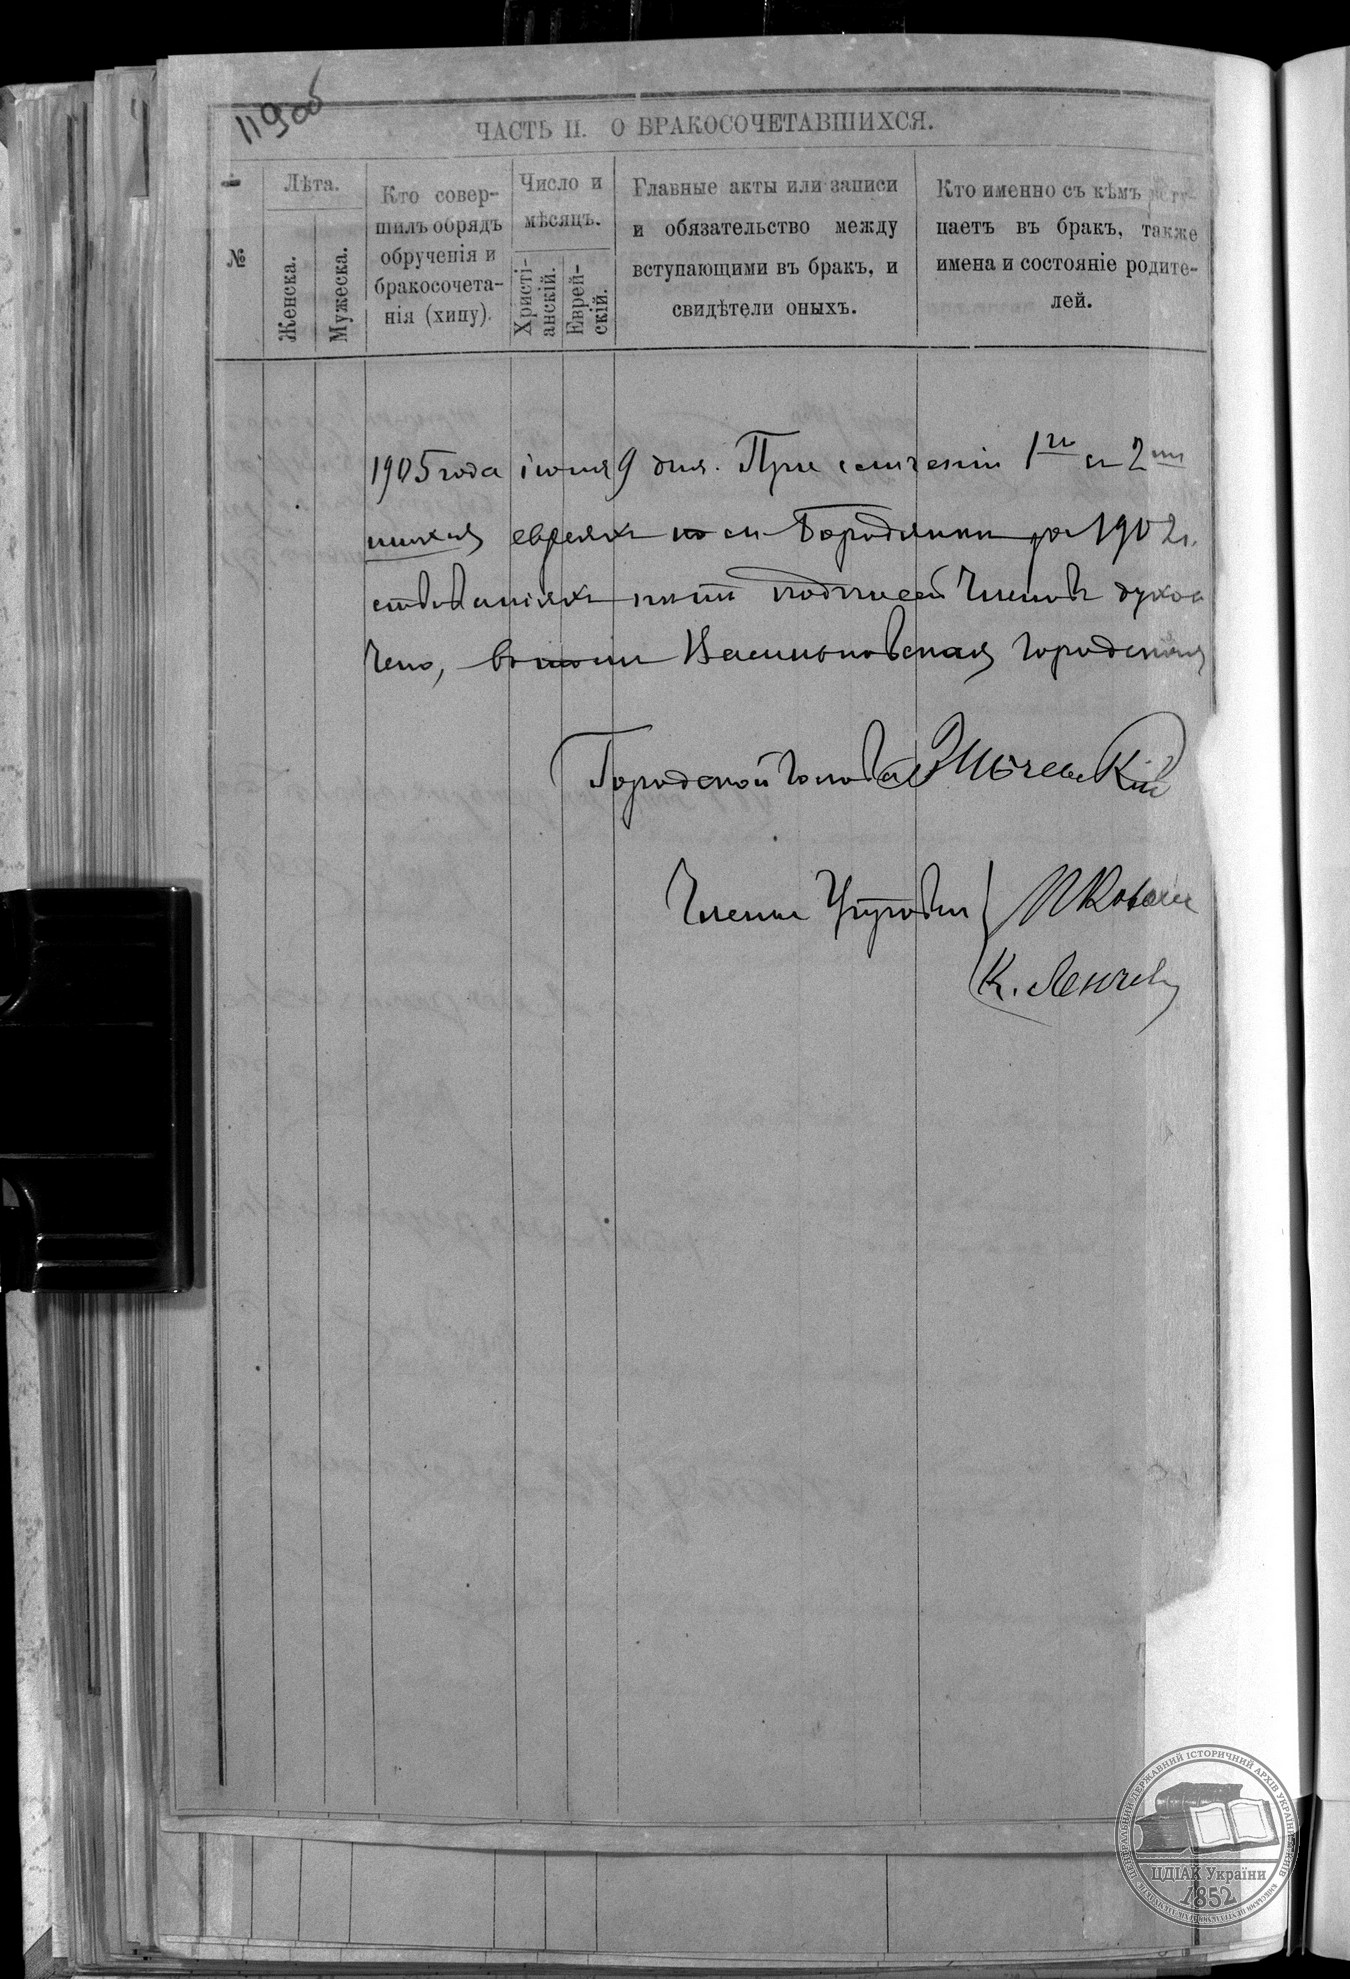 119об
ЧАСТЬ II. О БРАКОСОЧЕТАВШИХСЯ.
№
Лѣта.
Женска.
Мужеска.
Кто совер-
шилъ обрядъ
обрученія и
бракосочета-
нія (хипу).
Число и
мѣсяцъ.
Христі-
анскій.
Еврей-
скій.
Главные акты или записи
и обязательство между
вступающими въ бракъ, и
свидѣтели оныхъ.
Кто именно съ кѣмъ всту-
паетъ въ бракъ, также
имена и состояніе родите-
лей.
1905 года іюня 9 дня. При сличеніи 1го съ 2мъ
евреяхъ по м. Бородянки за 1902 г.
нѣтъ подписей Членовъ духов
чего, Васильковская Городская
Городской Голова
Члены Управы
К.
ЦЕНТРАЛЬНИЙ ДЕРЖАВНИЙ ІСТОРИЧНИЙ АРХІВ УКРАЇНИ, М. КИЇВ
ЦДІАК України
1852